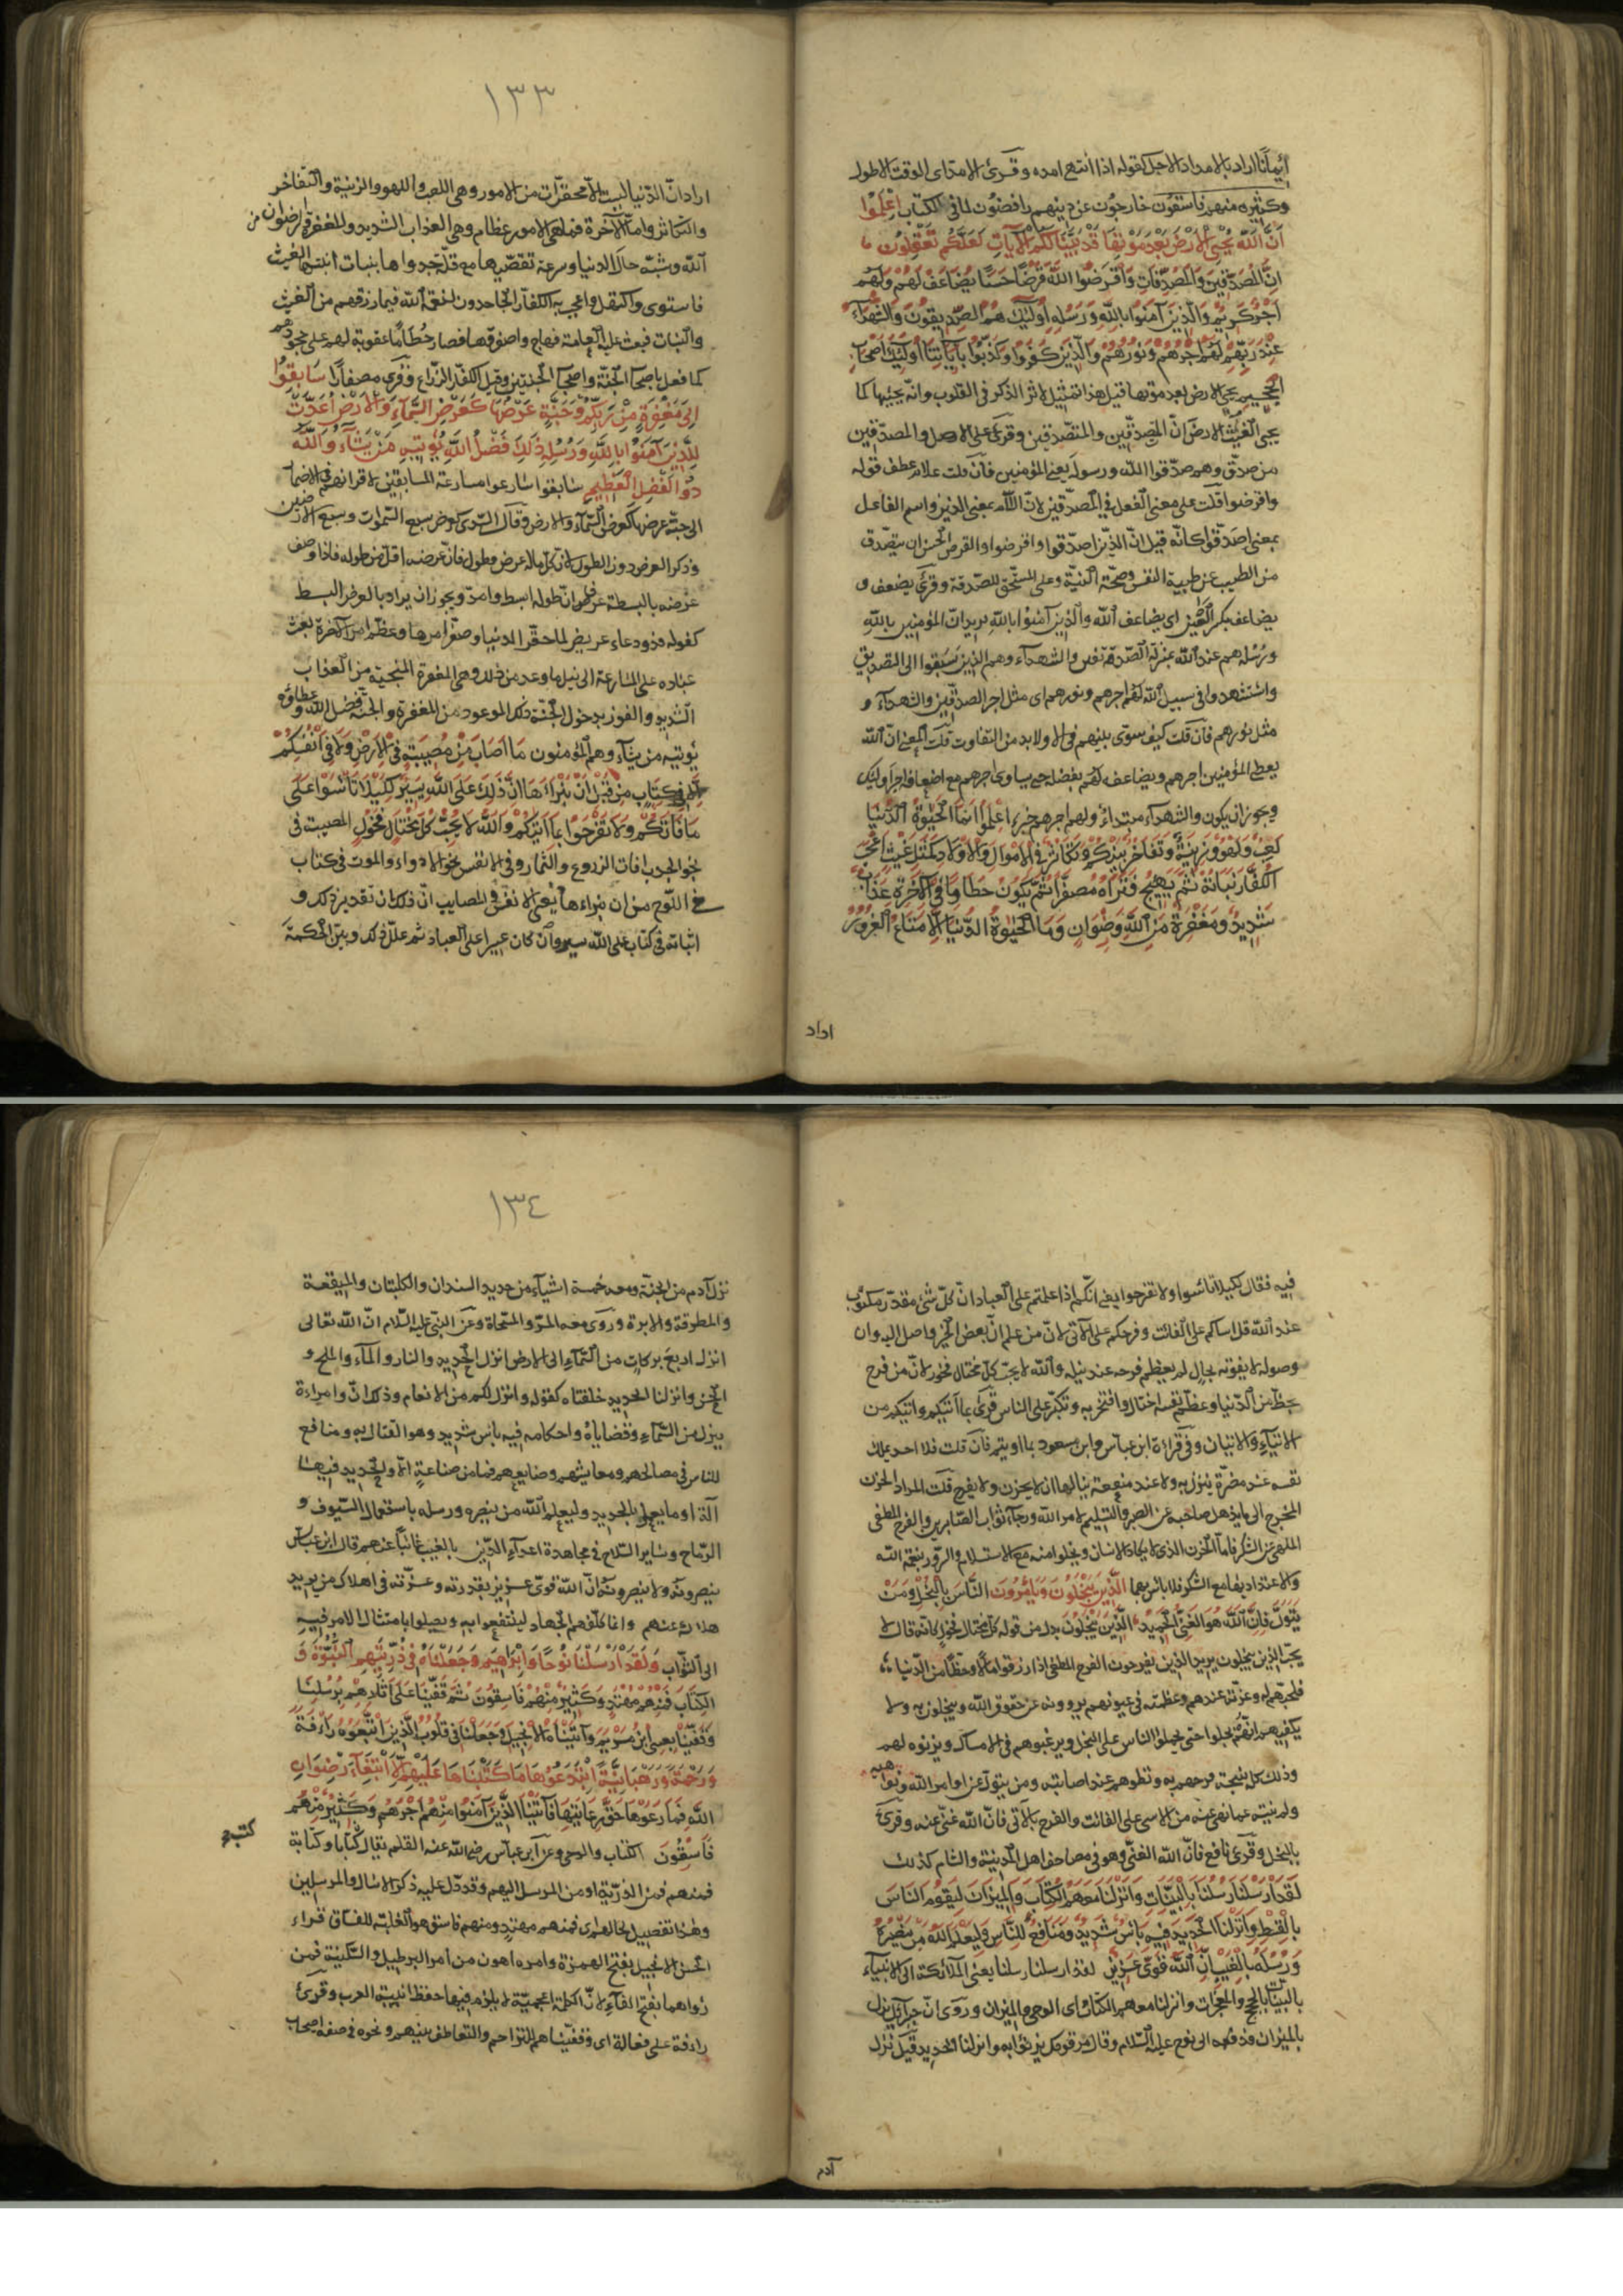 إيماننا اراد بالامد الاجل كقوله اذا انتهى امده وقرئ الامدّ اى الوقت الاطول
وكثير منهم فاسقون خارجون عن دينهم رافضون لما فى الكتاب اِعْلَمُوا
اَنَّ اللّٰهَ يُحْيِى الْاَرْضَ بَعْدَ مَوْتِهَا قَدْ بَيَّنَّا لَكُمُ الْاٰيَاتِ لَعَلَّكُمْ تَعْقِلُونَ
اِنَّ الْمُصَدِّقِينَ وَالْمُصَدِّقَاتِ وَاَقْرَضُوا اللّٰهَ قَرْضًا حَسَنًا يُضَاعَفُ لَهُمْ وَلَهُمْ
اَجْرٌ كَرِيمٌ وَالَّذِينَ آمَنُوا بِاللّٰهِ وَرُسُلِهِ اُولٰئِكَ هُمُ الصِّدِّيقُونَ وَالشُّهَدَاءُ
عِنْدَ رَبِّهِمْ لَهُمْ اَجْرُهُمْ وَنُورُهُمْ وَالَّذِينَ كَفَرُوا وَكَذَّبُوا بِآيَاتِنَا اُولٰئِكَ اَصْحَابُ
الْجَحِيمِ يحيى الارض بعد موتها قيل هذا تمثيل لاثر الذكر فى القلوب وانه يحييها كما
يحيى الغيث الارض انّ المصدّقين والمتصدّقين وقرئ على الاصل والمصدّقين
من صدّق وهم صدّقوا اللّه ورسوله يعنى المؤمنين فان قلت علام عطف قوله
واقرضوا قلت على معنى الفعل فى المصدّقين لانّ اللام بمعنى الذين واسم الفاعل
بمعنى اصدّقوا كانّه قيل انّ الذين اصدّقوا واقرضوا والقرض الحسن ان يتصدّق
من الطيب عن طيبة النفس وصحّة النيّة وعلى المستحق للصّدقة وقرئ يضعف و
يضاعف بكسر العين اى يضاعف اللّه والّذين آمنوا باللّه يريد انّ المؤمنين باللّه
ورسله هم عند اللّه بمنزلة الصّدّيقين والشهداء وهم الذين سبقوا الى التصديق
واستشهدوا فى سبيل اللّه لهم اجرهم ونورهم اى مثل اجر الصدّيقين والشهداء و
مثل نورهم فان قلت كيف يسوّى بينهم فى الاولا بد من التفاوت قلت المعنى انّ اللّه
يعطى المؤمنين اجرهم ويضاعفه لهم بفضله حتى يساوى اجرهم مع اضعافه اجر اوليك
ويجوز ان يكون والشهداء مبتداء ولهم اجرهم خبره اِعْلَمُوا اَنَّمَا الْحَيٰوةُ الدُّنْيَا
لَعِبٌ وَلَهْوٌ وَزِينَةٌ وَتَفَاخُرٌ بَيْنَكُمْ وَتَكَاثُرٌ فِى الْاَمْوَالِ وَالْاَوْلَادِ كَمَثَلِ غَيْثٍ اَعْجَبَ
الْكُفَّارَ نَبَاتُهُ ثُمَّ يَهِيجُ فَتَرَاهُ مُصْفَرًّا ثُمَّ يَكُونُ حُطَامًا وَفِى الْاٰخِرَةِ عَذَابٌ
شَدِيدٌ وَمَغْفِرَةٌ مِنَ اللّٰهِ وَرِضْوَانٌ وَمَا الْحَيٰوةُ الدُّنْيَا اِلَّا مَتَاعُ الْغُرُورِ
اراد
١٣٣
اراد انّ الدّنيا ليست الّا محقرات من الامور وهى اللعب واللهو والزينة والتّفاخر
والتكاثر وامّا الآخرة فما هى الا امور عظام وهى العذاب الشديد والمغفرة ورضوان من
اللّه وشبّه حال الدنيا وسرعة تقضّيها مع قلّة جدواها بنبات انبته الغيث
فاستوى واكتهل واعجب به الكفّار الجاحدون لنعمة اللّه فيما رزقهم من الغيث
والنبات فبعث عليه العاهة فهاج واصفرّ فصار حُطَامًا عقوبة لهم على جحودهم
كما فعل باصحاب الجنّة واصحاب الجنتين وقيل الكفّار الزّراع وقرئ مصفارّا سَابِقُوا
اِلٰى مَغْفِرَةٍ مِنْ رَبِّكُمْ وَجَنَّةٍ عَرْضُهَا كَعَرْضِ السَّمَاءِ وَالْاَرْضِ اُعِدَّتْ
لِلَّذِينَ آمَنُوا بِاللّٰهِ وَرُسُلِهِ ذٰلِكَ فَضْلُ اللّٰهِ يُؤْتِيهِ مَنْ يَشَاءُ وَاللّٰهُ
ذُو الْفَضْلِ الْعَظِيمِ سابقوا سارعوا مسارعة المسابقين لاقرانهم فى المضمار
الى جنّة عرضها كعرض السّماء والارض وقال السّدى كعرض سبع السّموات وسبع الارضين
وذكر العرض دون الطول لانّ كلّ ماله عرض وطول فانّ عرضه اقلّ من طوله فاذا وصف
عرضه بالبسطة عرف انّ طوله ابسط وامدّ ويجوز ان يراد بالعرض البسط
كقوله فذو دعاء عريض لما حقّر الدنيا وصغّر امرها وعظّم امر الآخرة بعث
عباده على المسارعة الى نيل ما وعد من ذلك وهى المغفرة المنجية من العذاب
الشديد والفوز بدخول الجنّة ذلك الموعود من المغفرة والجنّة فضل اللّه وعطاؤه
يؤتيه من يشاء وهم المؤمنون مَا اَصَابَ مِنْ مُصِيبَةٍ فِى الْاَرْضِ وَلَا فِى اَنْفُسِكُمْ
اِلَّا فِى كِتَابٍ مِنْ قَبْلِ اَنْ نَبْرَاَهَا اِنَّ ذٰلِكَ عَلَى اللّٰهِ يَسِيرٌ لِكَيْلَا تَاْسَوْا عَلٰى
مَا فَاتَكُمْ وَلَا تَفْرَحُوا بِمَا آتٰيكُمْ وَاللّٰهُ لَا يُحِبُّ كُلَّ مُخْتَالٍ فَخُورٍ المصيبة فى
نحو الجدب افات الزروع والثمار وفى الانفس نحو الادواء والموت فى كتاب
فى اللّوح من ان نبراها يعنى الانفس والمصايب انّ ذلك ان تقدير ذلك و
اثباته فى كتاب على اللّه يسير وان كان عسيرا على العباد ثم علّل ذلك وبيّن الحكمة
فيه فقال لكيلا تاسوا ولا تفرحوا يعنى انكم اذا علمتم على العباد انّ كلّ شئ مقدّر مكتوب
عند اللّه قل اساكم على الفائت وفرحكم على الآتى لانّ من علم انّ بعض الخير واصل اليه وان
وصوله لا يفوته بحال لم يعظم فرحه عند نيله واللّه لا يحبّ كلّ مختال فخور لانّ من فرح
بحظّ من الدّنيا وعظّم نفسه اختال وافتخر به وتكبّر على الناس قرئ بما آتيكم واتيكم من
الايتاء والاتيان وفى قراءة ابن عباس وابن مسعود بما اوتيتم فان قلت فلا احد يملك
نفسه عند مضرّة ينزل به ولا عند منفعة ينالها ان لا يحزن ولا يفرح قلت المراد الحزن
المخرج الى ما يذهل صاحبه عن الصبر والتسليم لامر اللّه ورجاء ثواب الصّابرين والفرح المطغى
الملهى عن الشكر فامّا الحزن الذى لا يكاد الانسان ويخلوا منه مع الاستسلام والسّرور بنعمة اللّه
والاعتداد بها مع الشكر فلا باس بهما اَلَّذِينَ يَبْخَلُونَ وَيَاْمُرُونَ النَّاسَ بِالْبُخْلِ وَمَنْ
يَتَوَلَّ فَاِنَّ اللّٰهَ هُوَ الْغَنِىُّ الْحَمِيدُ الّذين يبخلون بدل من قوله كلّ مختال فخور كانّه قال لا
يحبّ الذين يبخلون يريد الذين يفرحون الفرح المطغى اذا رزقوا مالا وحظّا من الدّنيا
فلحبّهم له وعزّته عندهم وعظمته فى عيونهم يزوونه عن حقوق اللّه ويبخلون به ولا
يكفيهم انّهم بخلوا حتى يحملوا الناس على البخل ويرغبوهم فى الامساك ويزيّنوه لهم
وذلك كلّه نتيجة فرحهم به وبطرهم عند اصابته ومن يتولّ عن اوامر اللّه ونواهيه
ولم ينته عمّا نهى عنه من الاسى على الفائت والفرح بالآتى فانّ اللّه غنىّ عنه وقرئ
بالبخل وقرئ نافع فانّ اللّه الغنىّ وهو فى مصاحف اهل المدينة والشام كذلك
لَقَدْ اَرْسَلْنَا رُسُلَنَا بِالْبَيِّنَاتِ وَاَنْزَلْنَا مَعَهُمُ الْكِتَابَ وَالْمِيزَانَ لِيَقُومَ النَّاسُ
بِالْقِسْطِ وَاَنْزَلْنَا الْحَدِيدَ فِيهِ بَاْسٌ شَدِيدٌ وَمَنَافِعُ لِلنَّاسِ وَلِيَعْلَمَ اللّٰهُ مَنْ يَنْصُرُهُ
وَرُسُلَهُ بِالْغَيْبِ اِنَّ اللّٰهَ قَوِىٌّ عَزِيزٌ لقد ارسلنا رسلنا يعنى الملائكة الى الانبياء
بالبيّنات بالحجج والمعجزات وانزلنا معهم الكتاب اى الوحى والميزان وروى انّ جبرائيل نزل
بالميزان فدفعه الى نوح عليه السّلام وقال مر قومك يزنوا به وانزلنا الحديد قيل نزل
آدم
١٣٤
نزل آدم من الجنّة ومعه خمسة اشياء من حديد السندان والكلبتان والميقعة
والمطرقة والابرة وروى معه المرّ والمسحاة وعن النبى عليه السّلام انّ اللّه تعالى
انزل اربع بركات من السّماء الى الارض انزل الحديد والنار والماء والملح و
الحسن وانزلنا الحديد خلقناه كقوله وانزل لكم من الانعام وذلك انّ اوامره
ينزل من السّماء وقضاياه واحكامه فيه باس شديد وهو القتال به ومنافع
للناس فى مصالحهم ومعايشهم وصنايعهم فما من صناعة الّا والحديد فيها
آلة او ما يعمل بالحديد وليعلم اللّه من ينصره ورسله باستعمال السّيوف و
الرّماح وساير السّلاح فى مجاهدة اعداء الدّين بالغيب غائبا عنهم قال ابن عباس
ينصرونه ولا يبصرونه انّ اللّه قوىّ عزيز بقدرته وعزّته فى اهلاك من يريد
هلاكه عنهم وانما كلّفهم الجهاد لينتفعوا به ويصلوا بامتثال الامر فيه
الى الثّواب وَلَقَدْ اَرْسَلْنَا نُوحًا وَاِبْرٰهِيمَ وَجَعَلْنَا فِى ذُرِّيَّتِهِمَا النُّبُوَّةَ وَ
الْكِتَابَ فَمِنْهُمْ مُهْتَدٍ وَكَثِيرٌ مِنْهُمْ فَاسِقُونَ ثُمَّ قَفَّيْنَا عَلٰى آثَارِهِمْ بِرُسُلِنَا
وَقَفَّيْنَا بِعِيسَى ابْنِ مَرْيَمَ وَآتَيْنَاهُ الْاِنْجِيلَ وَجَعَلْنَا فِى قُلُوبِ الَّذِينَ اتَّبَعُوهُ رَاْفَةً
وَرَحْمَةً وَرَهْبَانِيَّةً ابْتَدَعُوهَا مَا كَتَبْنَاهَا عَلَيْهِمْ اِلَّا ابْتِغَاءَ رِضْوَانِ
اللّٰهِ فَمَا رَعَوْهَا حَقَّ رِعَايَتِهَا فَآتَيْنَا الَّذِينَ آمَنُوا مِنْهُمْ اَجْرَهُمْ وَكَثِيرٌ مِنْهُمْ
فَاسِقُونَ الكتاب والوحى وعن ابن عباس رضى اللّه عنه القلم يقال كتابا وكتابة
فمنهم فمن الذرّية او من المرسل اليهم وقد دلّ عليه ذكر الارسال والمرسلين
وهذا تفصيل لحالهم اى فمنهم مهتد ومنهم فاسق والغلبة للفسّاق قراء
الحسن الانجيل بفتح الهمزة وامره اهون من امر البرطيل والسّكينة فمن
رواهما بفتح الفاء لانّ الكلمة اعجميّة لا يلزم فيها حفظ ابنية العرب وقرئ
راءفة على فعالة اى وفقناهم للتراحم والتعاطف بينهم ونحوه فى صفة اصحاب